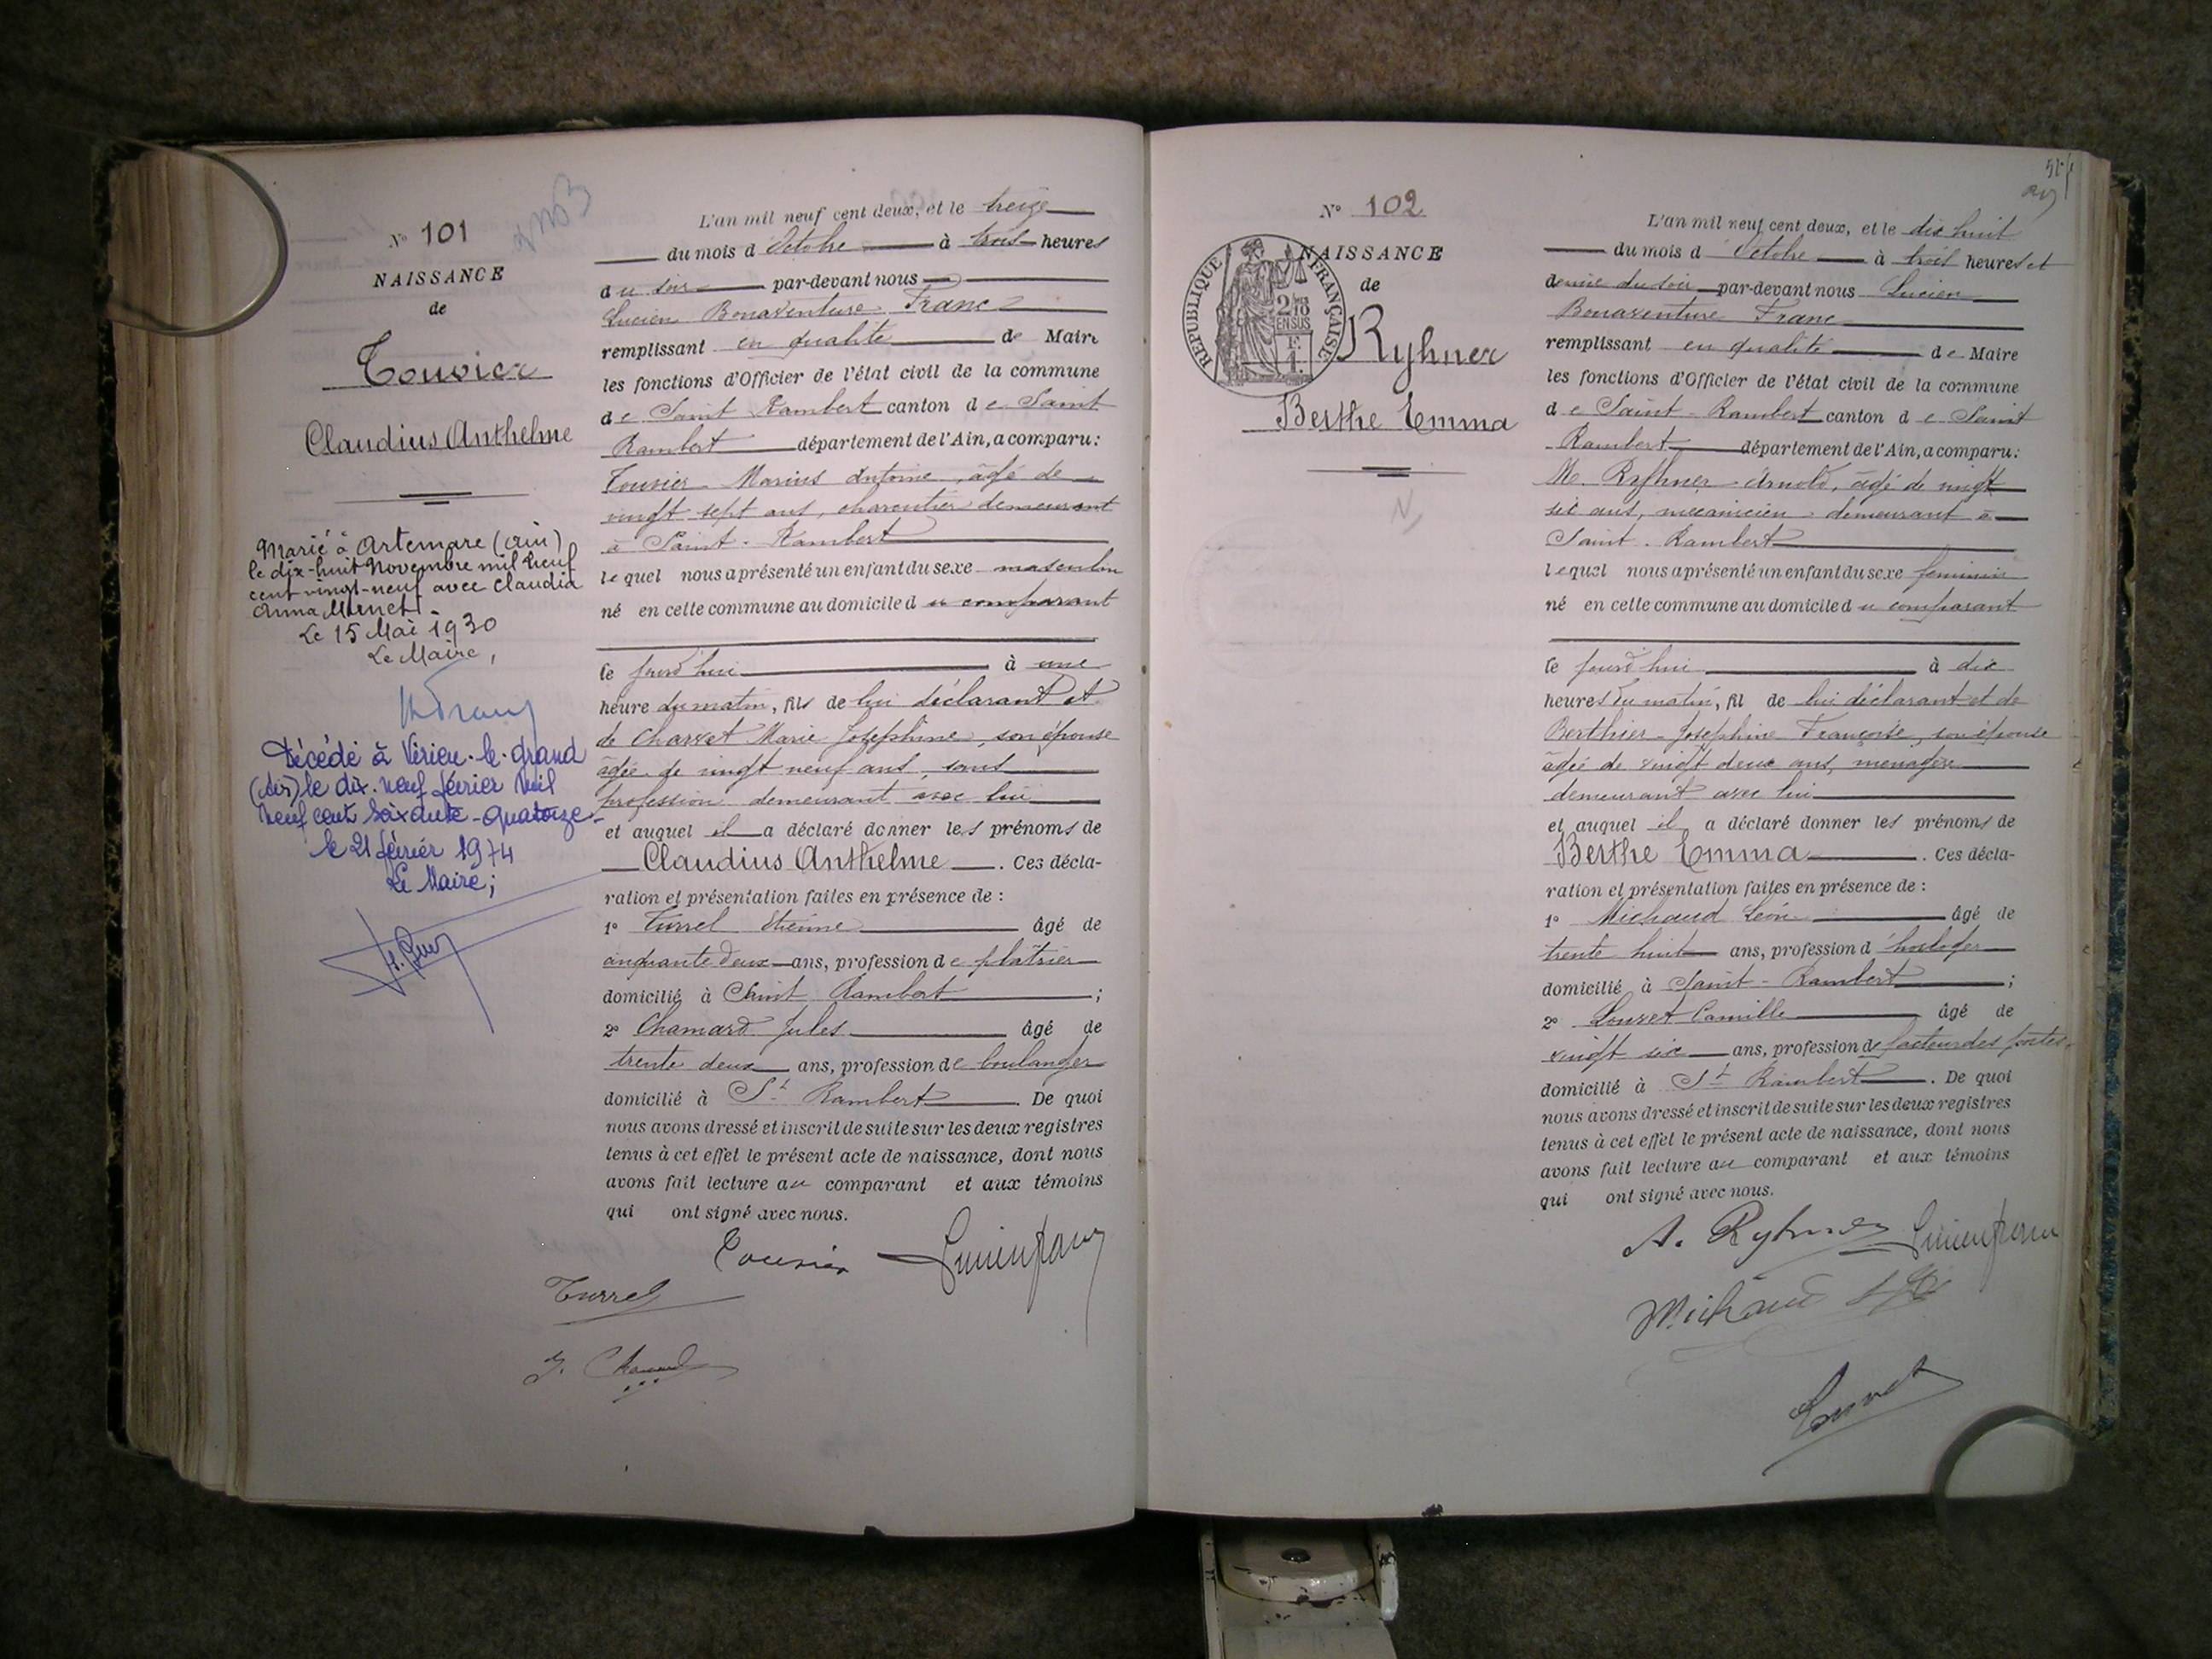 N° 101
NAISSANCE
de
Touvier
Claudius Anthelme
Marié à Artemare (Ain)
le dix-huit Novembre mil neuf
cent vingt-neuf avec Claudia
Anna
Le 15 Mai 1930
Le Maire,
Décédé à Virieu-le-Grand
(Ain) le dix-neuf février mil
neuf cent soixante-quatorze-
le 21 février 1974
Le Maire;
L'an mil neuf cent deux, et le treize
du mois d'Octobre à trois heures
du soir par-devant nous
Lucien Bonaventure Franc
remplissant en qualité de Maire
les fonctions d'Officier de l'état civil de la commune
de Saint Rambert canton de Saint
Rambert département de l'Ain, a comparu:
Touvier Marius Antoine, âgé de
vingt sept ans, charcutier demeurant
à Saint-Rambert
lequel nous a présenté un enfant du sexe masculin
né en cette commune au domicile du comparant
ce jourd'hui à une
heure du matin, fils de lui déclarant et
de Charvet Marie Joséphine, son épouse
âgée de vingt neuf ans, sans
profession demeurant avec lui
et auquel il a déclaré donner les prénoms de
Claudius Anthelme. Ces décla-
ration et présentation faites en présence de:
1° Turrel Etienne âgé de
cinquante deux ans, profession de plâtrier
domicilié à Saint Rambert;
2° Chamard Jules âgé de
trente deux ans, profession de boulanger
domicilié à St Rambert. De quoi
nous avons dressé et inscrit de suite sur les deux registres
tenus à cet effet le présent acte de naissance, dont nous
avons fait lecture au comparant et aux témoins
qui ont signé avec nous.
Touvier Lucien Franc
Turrel
J. Chamard
N° 102
NAISSANCE
de
RÉPUBLIQUE FRANÇAISE
2/10
EN SUS
Ryhner
Berthe Emma
L'an mil neuf cent deux, et le dix huit
du mois d'Octobre à trois heures et
demie du soir par-devant nous Lucien
Bonaventure Franc
remplissant en qualité de Maire
les fonctions d'Officier de l'état civil de la commune
de Saint-Rambert canton de Saint
Rambert département de l'Ain, a comparu:
M. Ryhner Arnold, âgé de vingt
six ans, mécanicien demeurant à
Saint-Rambert
lequel nous a présenté un enfant du sexe féminin
né en cette commune au domicile du comparant
ce jourd'hui à dix
heures du matin, fil de lui déclarant et de
Berthier Joséphine Françoise, son épouse
âgée de vingt deux ans, ménagère
demeurant avec lui
et auquel il a déclaré donner les prénoms de
Berthe Emma. Ces décla-
ration et présentation faites en présence de:
1° Michaud Léon âgé de
trente huit ans, profession d'horloger
domicilié à Saint-Rambert;
2° Louvet Camille âgé de
vingt six ans, profession de facteur des postes
domicilié à St Rambert. De quoi
nous avons dressé et inscrit de suite sur les deux registres
tenus à cet effet le présent acte de naissance, dont nous
avons fait lecture au comparant et aux témoins
qui ont signé avec nous.
A. Ryhner Lucien Franc
Michaud
Louvet